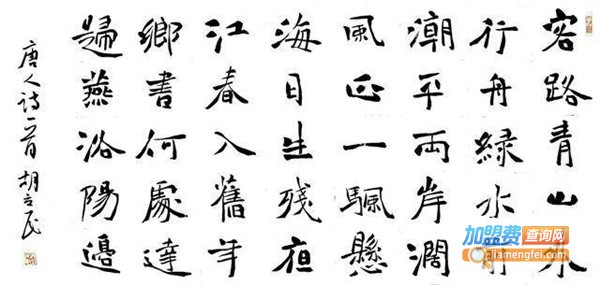 客路青山外
行舟緑水前
潮平兩岸濶
風正一颿懸
海日生殘夜
江春入舊年
鄉書何處達
歸燕洛陽邊
唐人诗一首 胡立民
加盟费查询网
jiamengfei.com